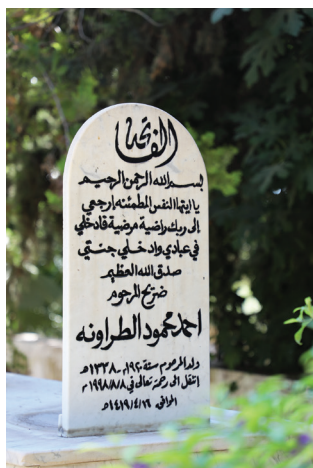 الفاتحة
بسم الله الرحمن الرحيم
يا ايتها النفس المطمئنه إرجعي
إلى ربك راضية مرضية فادخلي
في عبادي وادخلي جنتي
صدق الله العظيم
ضريح المرحوم
احمد محمود الطراونه
ولد المرحوم سنة ١٩٢٠م - ١٣٣٨هـ
انتقل الى رحمة تعالى في ١٩٩٨/٨/٨م
الموافق ١٤١٩/٤/١٦هـ